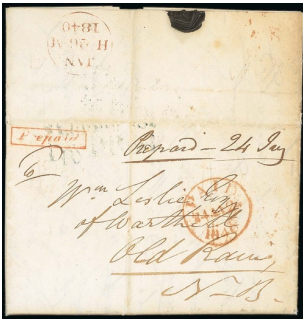 H 26 JA
JAN
1840
Prepaid
Prepaid — 24 Jany
To
Wm Leslie Esqr
of Warthill
Old Rain
N.B.